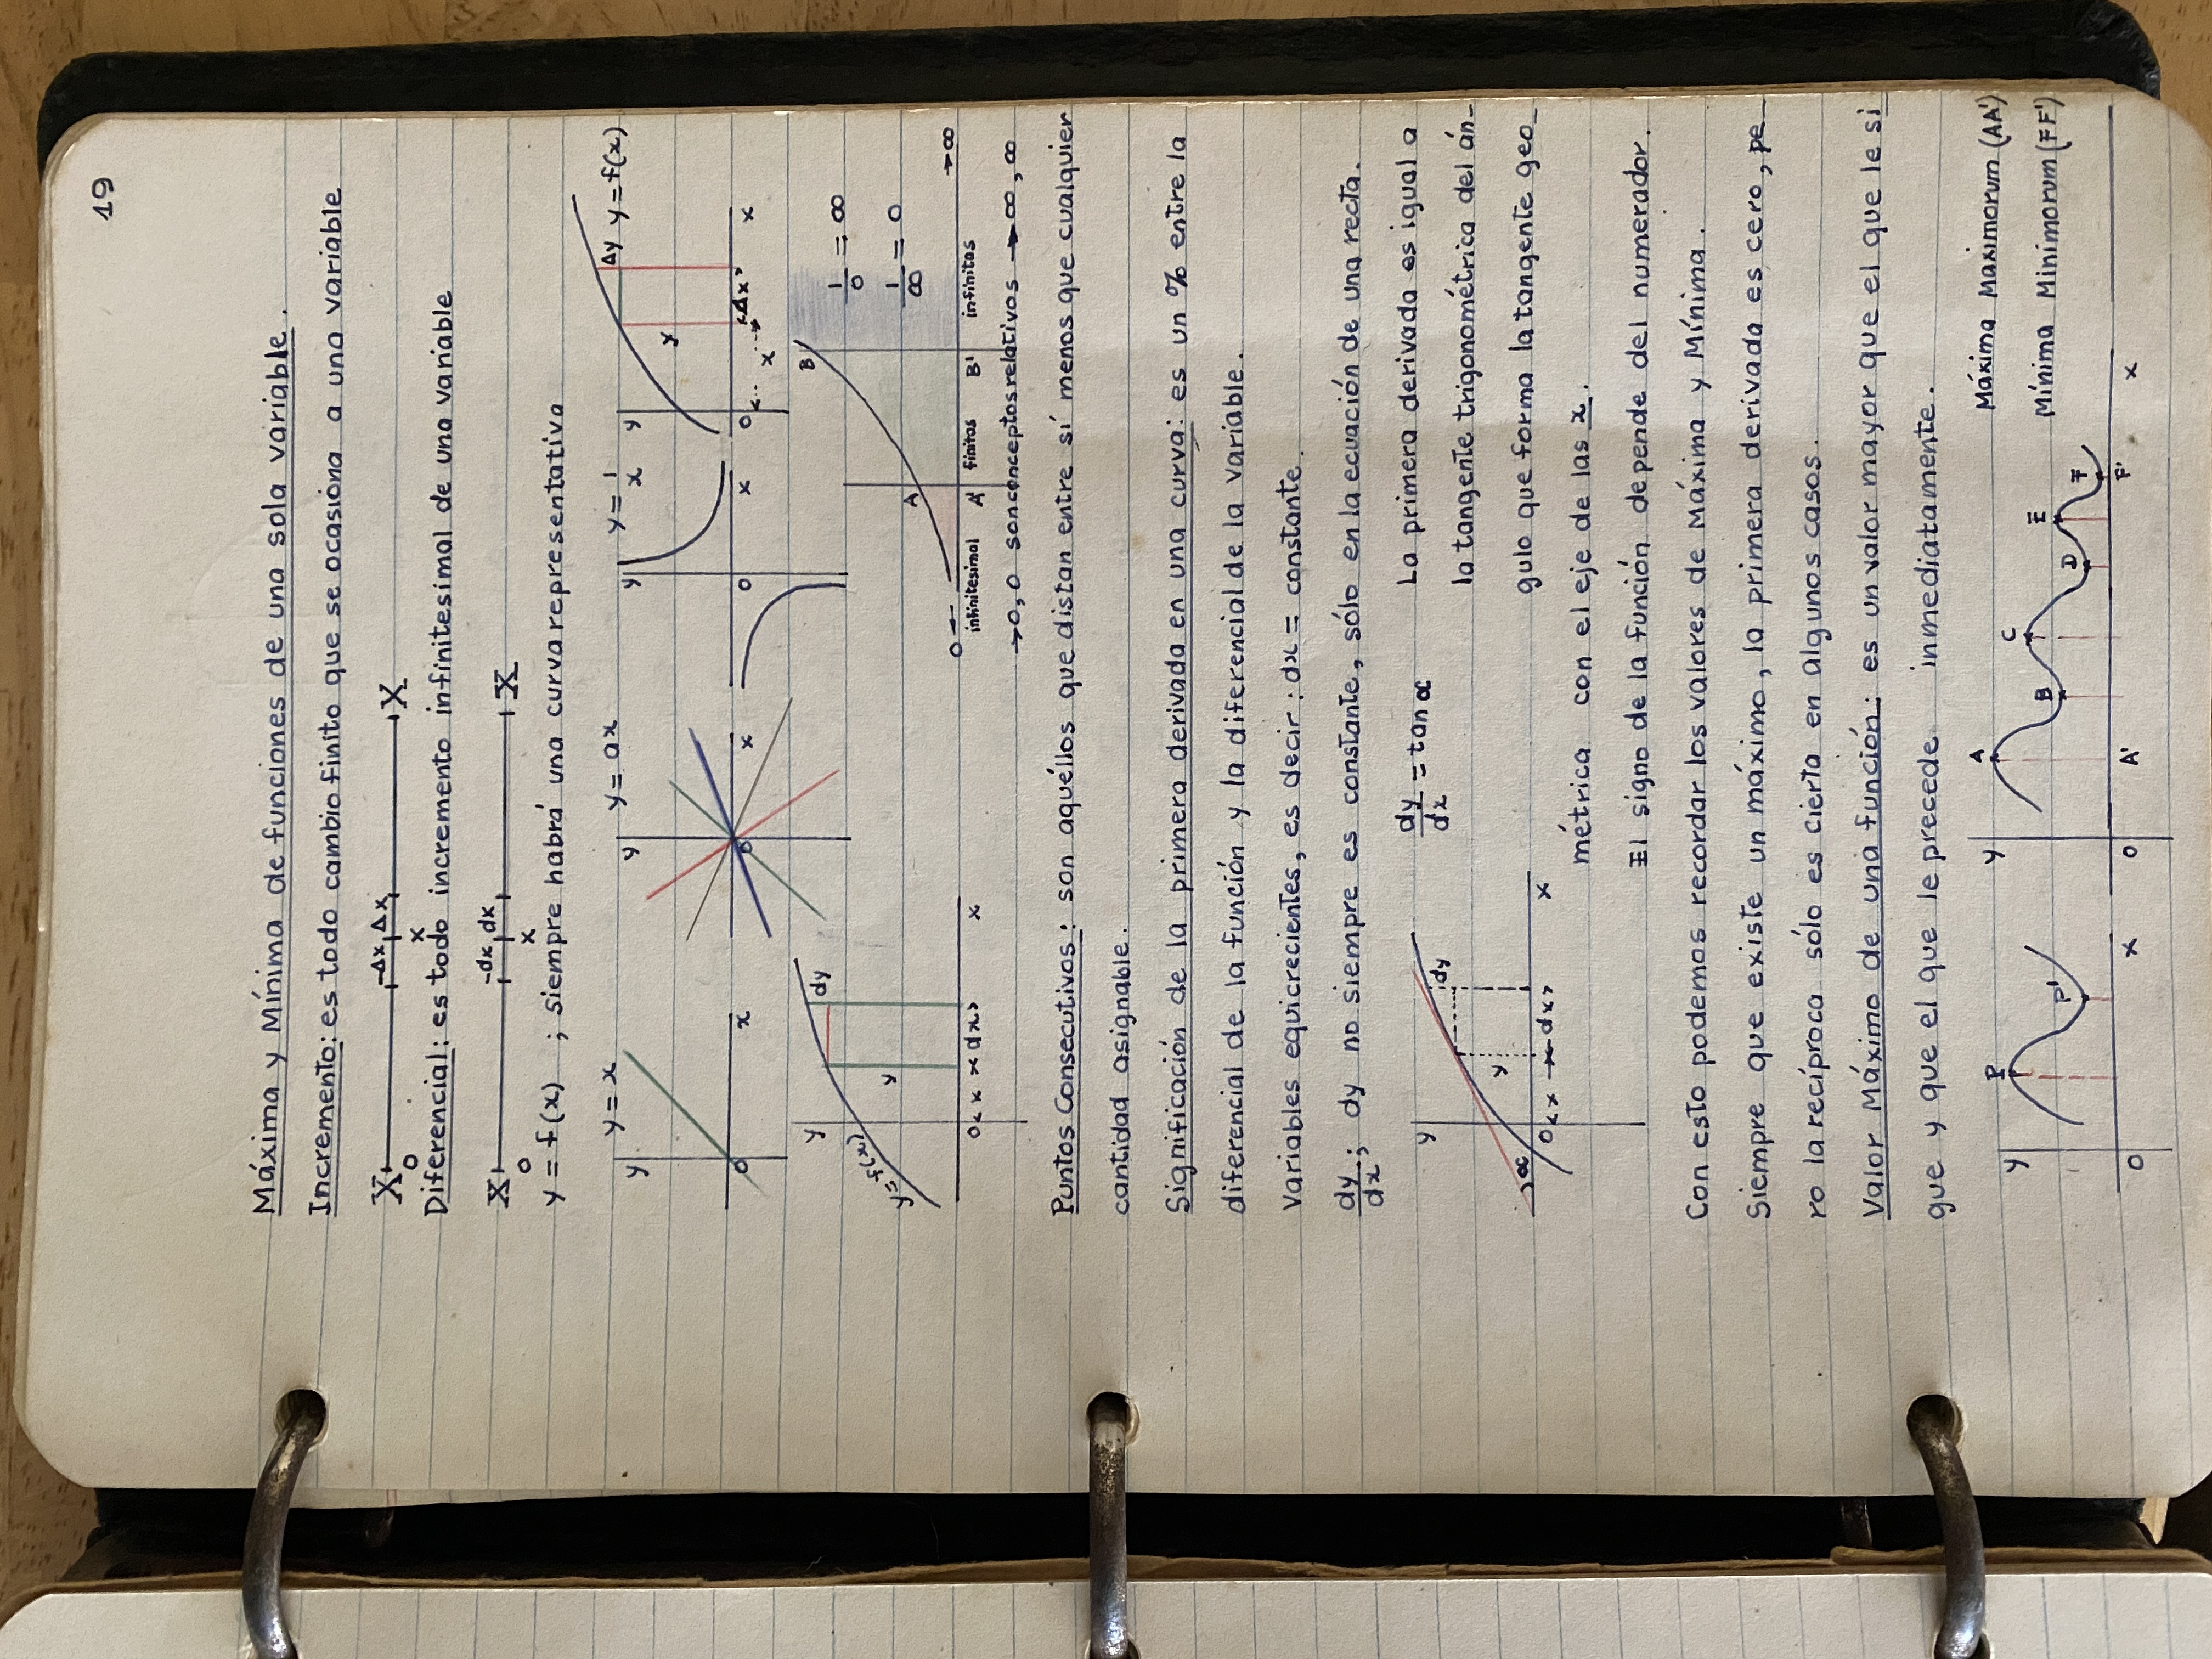 19
Máxima y Mínima de funciones de una sola variable.
Incremento: es todo cambio finito que se ocasiona a una variable
X -Δx Δx X
O x
Diferencial: es todo incremento infinitesimal de una variable
X -dx dx X
O x
y = f(x) ; siempre habrá una curva representativa
y = x y = ax y = 1/x y = f(x)
y O x y O x y O x y O x y Δx Δy x
y = f(x) y O x y dx dy x
0 A B 1/0 = ∞ 1/∞ = 0 → ∞
infinitesimal A' finitos B' infinitos
→ 0, 0 son conceptos relativos → ∞, ∞
Puntos Consecutivos: son aquéllos que distan entre sí menos que cualquier
cantidad asignable.
Significación de la primera derivada en una curva: es un % entre la
diferencial de la función y la diferencial de la variable.
Variables equicrecientes, es decir: dx = constante
dy/dx; dy no siempre es constante, sólo en la ecuación de una recta.
y α O x y dx dy x
dy/dx = tan α La primera derivada es igual a
la tangente trigonométrica del án-
gulo que forma la tangente geo
métrica con el eje de las x.
El signo de la función depende del numerador.
Con esto podemos recordar los valores de Máxima y Mínima.
Siempre que existe un máximo, la primera derivada es cero, pe
ro la recíproca sólo es cierta en algunos casos.
Valor Máximo de una función: es un valor mayor que el que le si
gue y que el que le precede inmediatamente.
y O P P' x
y O A A' B C D E F F' x
Máxima Maximorum (AA')
Mínima Minimorum (FF')